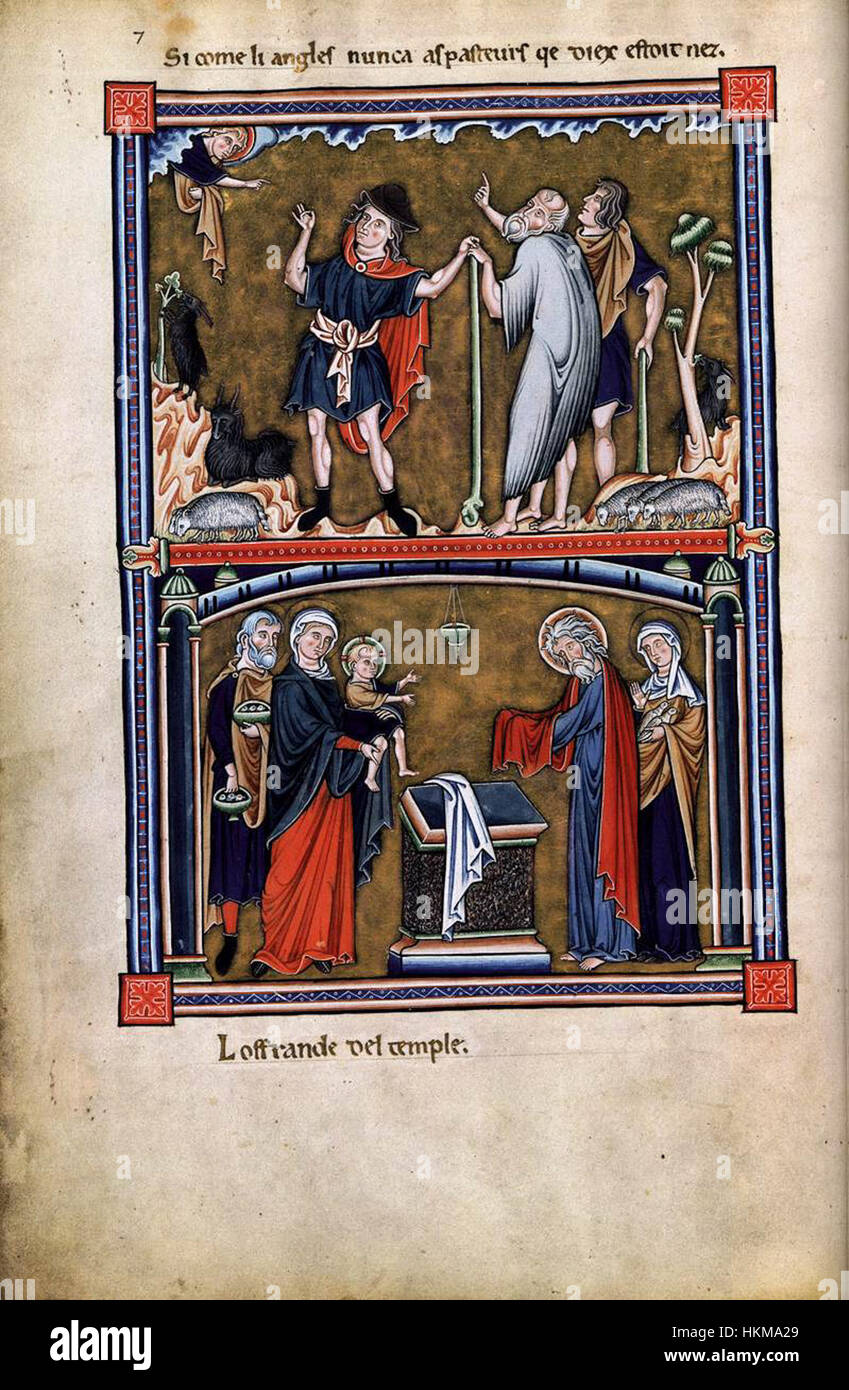 7
Si come li angles nunca as pasteurs qe diex estoit nez.
L offrande del temple.
alamy stock photo
HKMA29
www.alamy.com